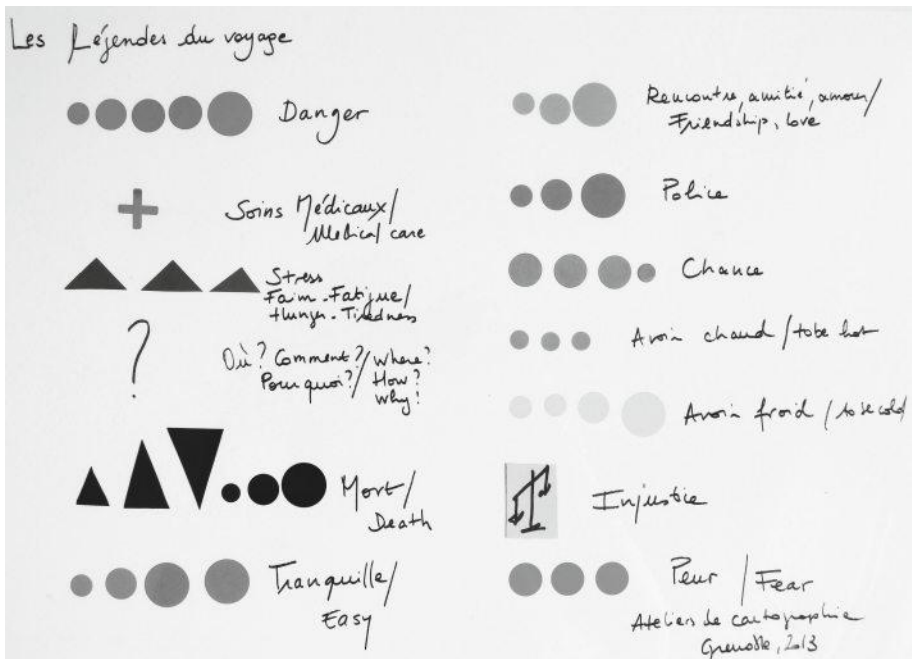 Les Légendes du voyage
Danger
Soins Médicaux/
Medical care
Stress
Faim-Fatigue/
Hunger-Tiredness
?
Où? Comment?/Where?
Pourquoi?/How?
Why?
Mort/
Death
Tranquille/
Easy
Rencontre, amitié, amour/
Friendship, love
Police
Chance
Avoir chaud/to be hot
Avoir froid/to be cold/
Injustice
Peur/Fear
Ateliers de cartographie
Grenoble, 2013